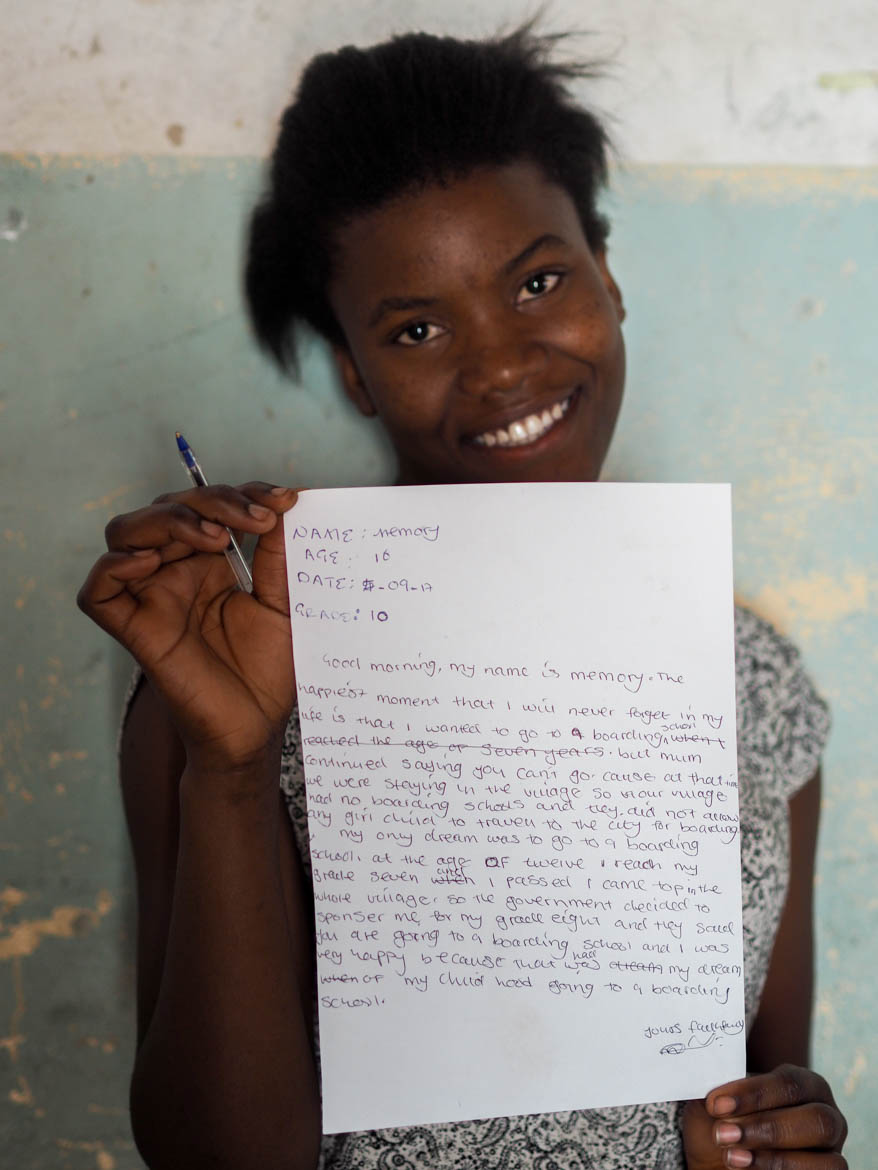 NAME: memory
AGE: 16
DATE: -09-17
GRADE: 10
Good morning, my name is memory. The
happiest moment that I will never forget in my
life is that I wanted to go to a boarding school when I
reached the age of seven years. but mum
continued saying you can't go. cause at that time
we were staying in the village so in our village
had no boarding schools and they did not allow
any girl child to travel to the city for boarding
my only dream was to go to a boarding
school. at the age OF twelve I reach my
grade seven when after I passed I came top in the
whole village. so the government decided to
sponser me for my grade eight and they said
you are going to a boarding school and I was
very happy because that was had dream my dream
when of my child hood going to a boarding
school.
yours faithfully